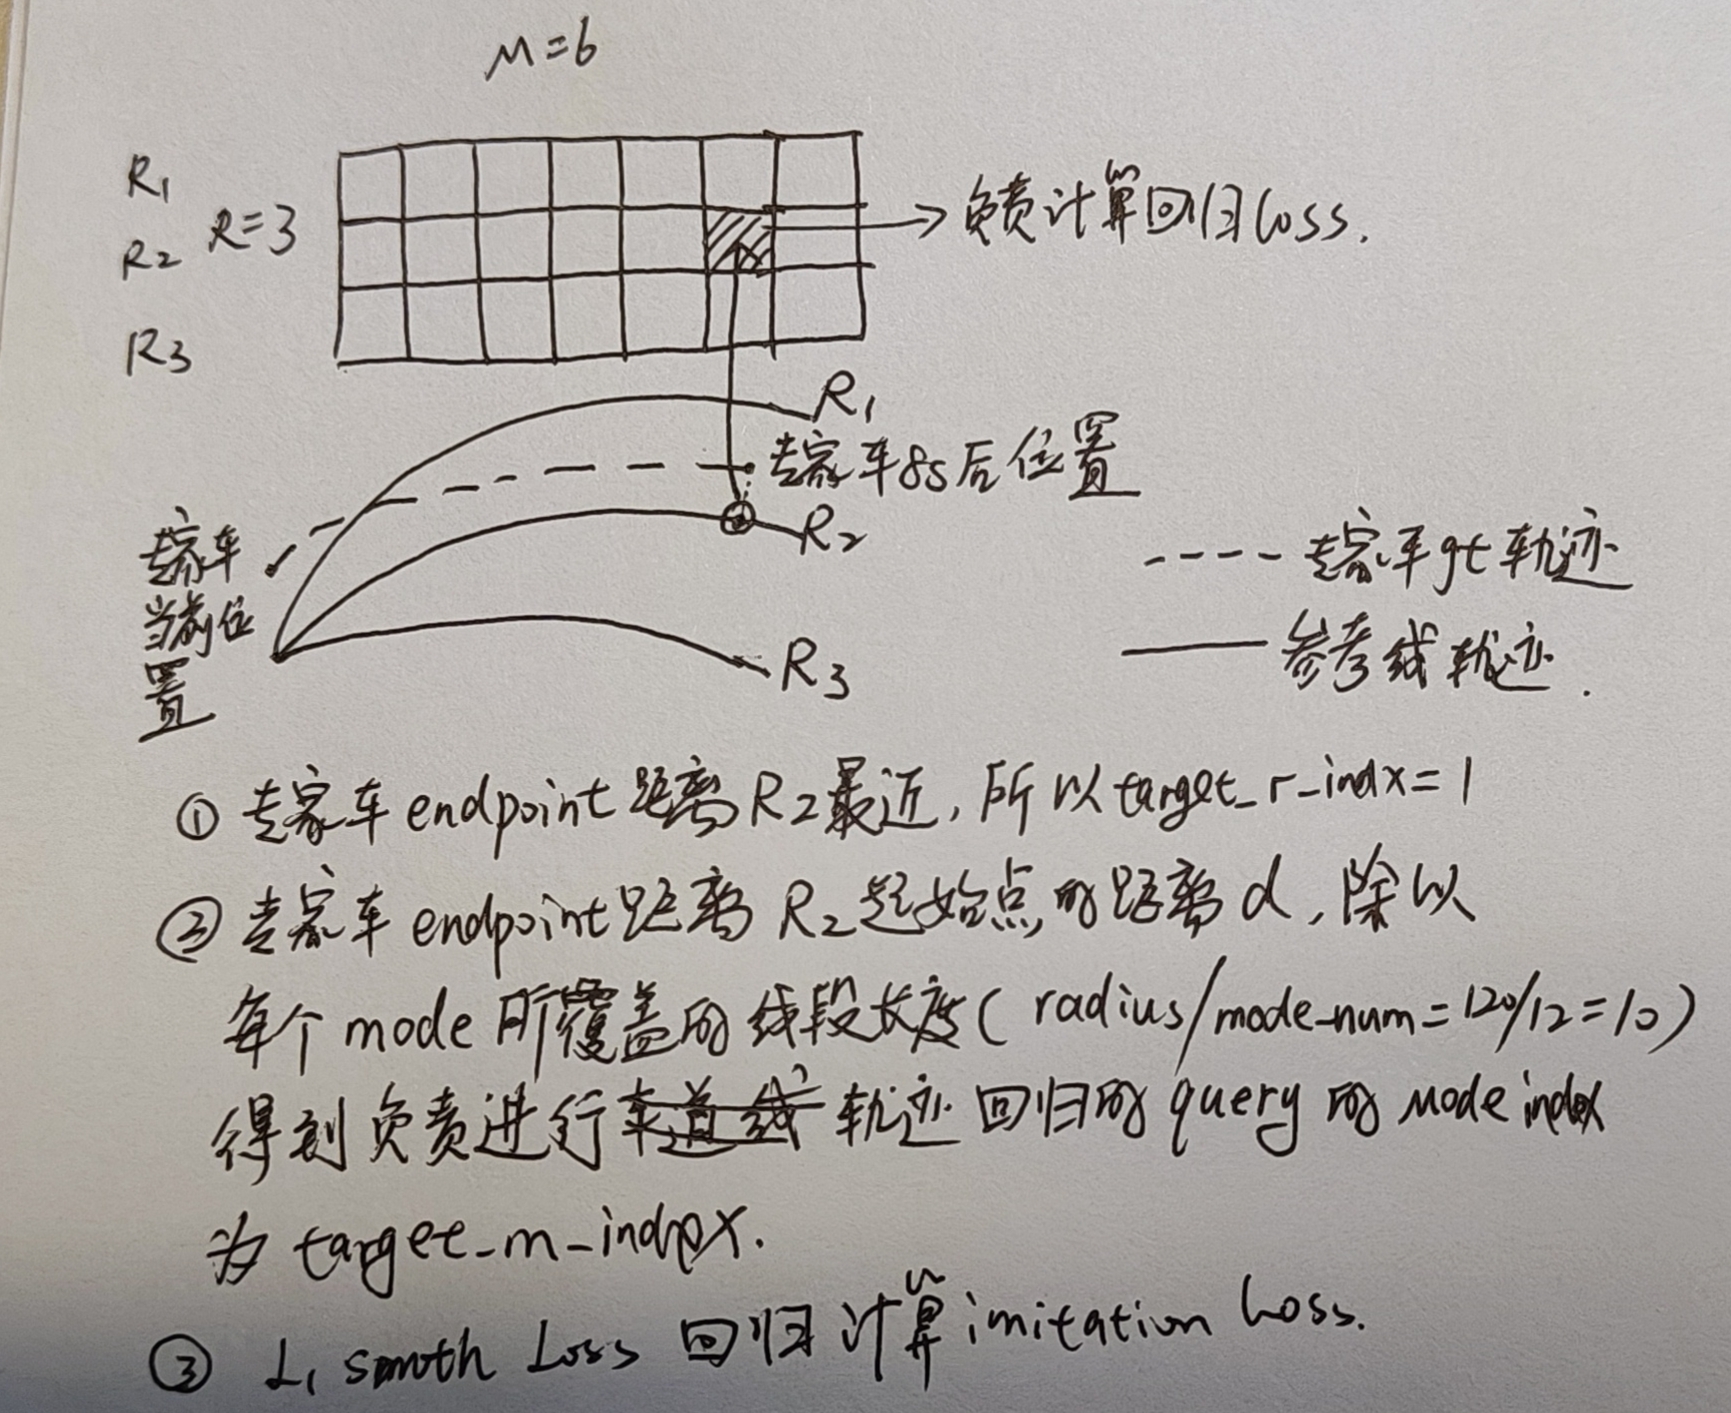 M=6
R1
R=3
R2
R3
负责计算回归loss.
R1
专家车8s后位置
R2
专家车
当前位
置
R3
---- 专家车gt轨迹
—— 参考线轨迹.
① 专家车endpoint距离R2最近,所以target_r_indx=1
② 专家车endpoint距离R2起始点的距离d,除以
每个mode所覆盖的线段长度(radius/mode_num=120/12=10)
得到负责进行车道线轨迹回归的query的mode index
为target_m_index.
③ L1 smoth Loss 回归计算imitation Loss.